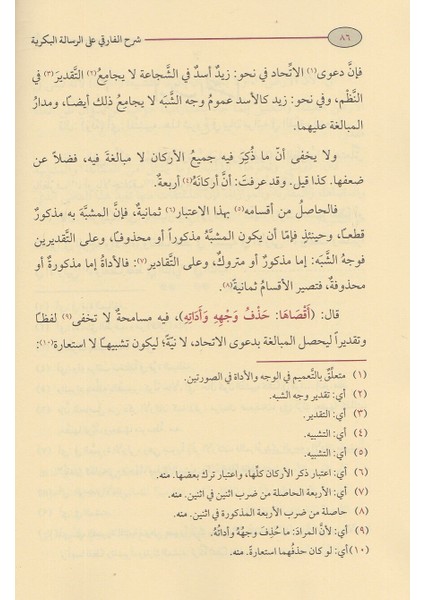 ٨٦
شرح الفارقي على الرسالة البكرية
فإنَّ دعوى(١) الاتِّحاد في نحو: زيدٌ أسدٌ في الشَّجاعة لا يجامِعُ(٢) التَّقديرَ(٣) في
النَّظْم، وفي نحو: زيد كالأسد عمومُ وجه الشَّبَه لا يجامِعُ ذلك أيضـا، ومدارُ
المبالغة عليهما.
ولا يخفى أنَّ ما ذُكِرَ فيه جميعُ الأركان لا مبالغةَ فيه، فضلاً عن
ضعفها. كذا قيل. وقد عرفتَ: أنَّ أركانَهُ(٤) أربعةٌ.
فالحاصلُ من أقسامه(٥) بهذا الاعتبار(٦) ثمانيةٌ، فإنَّ المشبَّهَ به مذكورٌ
قطعـا، وحينئذٍ فإمّا أن يكون المشبَّهُ مذكوراً أو محذوفـا، وعلى التَّقديرين
فوجهُ الشَّبَه: إما مذكورٌ أو متروكٌ، وعلى التَّقادير(٧): فالأداةُ إما مذكورةٌ أو
محذوفةٌ، فتصير الأقسامُ ثمانيةً(٨).
قال: (أَقْصَاهَا: حَذْفُ وَجْهِهِ وَأَدَاتِهِ)، فيه مسامحةٌ لا تخفى(٩) لفظـا
وتقديراً ليحصل المبالغة بدعوى الاتحاد، لا نيَّةً؛ ليكون تشبيهـا لا استعارة(١٠):
(١) متعلِّق بالتَّعميم في الوجه والأداة في الصورتين.
(٢) أي: تقدير وجه الشبه.
(٣) أي: التقدير.
(٤) أي: التشبيه.
(٥) أي: التشبيه.
(٦) أي: اعتبار ذكر الأركان كلِّها، واعتبار ترك بعضها. منه.
(٧) أي: الأربعة الحاصلة من ضرب اثنين في اثنين. منه.
(٨) حاصلة من ضرب الأربعة المذكورة في اثنين. منه.
(٩) أي: لأنَّ المرادَ: ما حُذِفَ وجهُهُ وأداتُهُ.
(١٠) أي: لو كان حذفُهما استعارةً. منه.